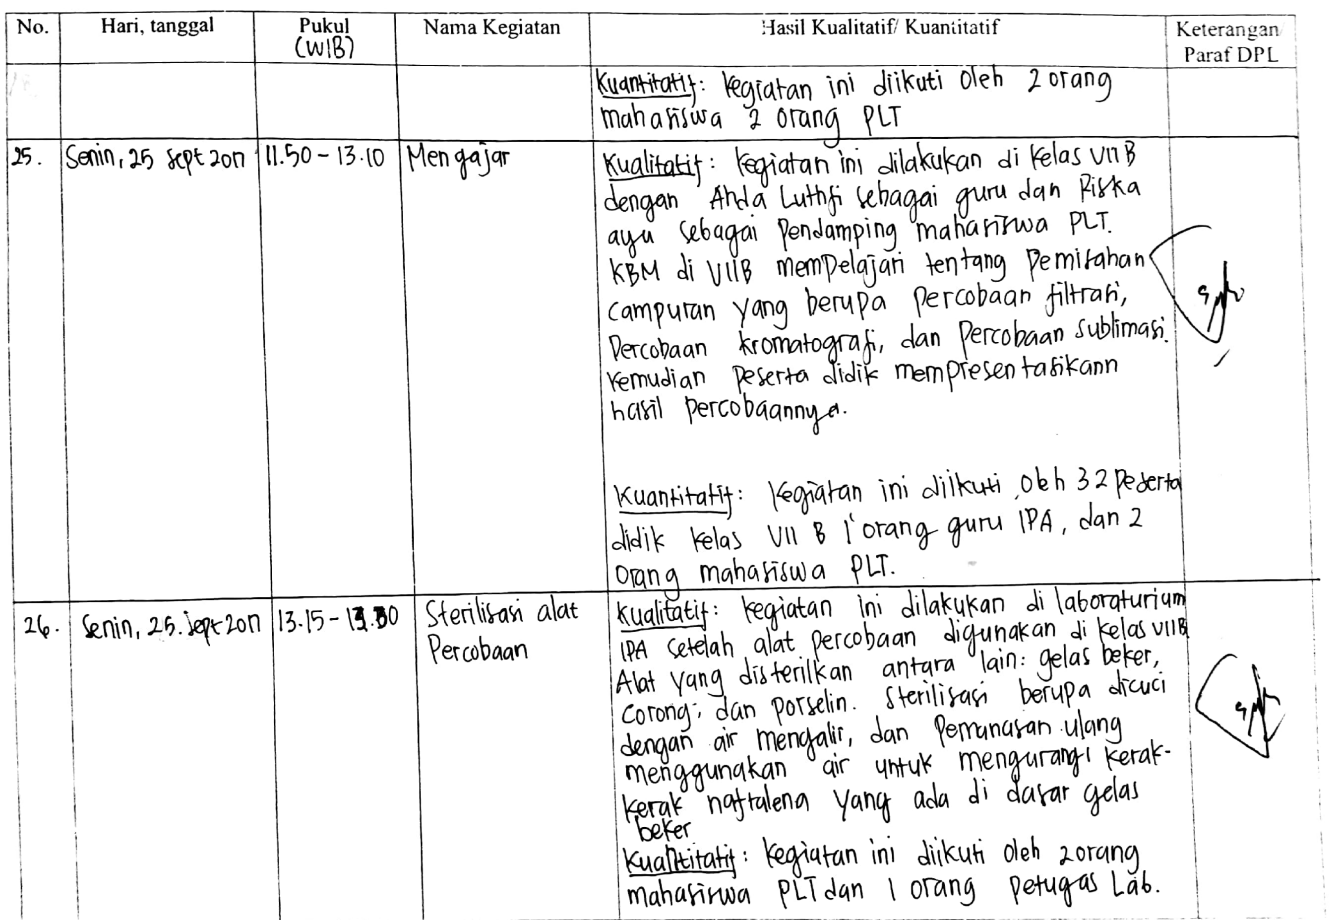 No. Hari, tanggal Pukul Nama Kegiatan Hasil Kualitatif/ Kuantitatif Keterangan
(WIB) Paraf DPL
Kuantitatif: Kegiatan ini diikuti oleh 2 orang
mahasiswa 2 orang PLT
25. Senin, 25 Sept 2017 11.50 - 13.10 Mengajar Kualitatif: Kegiatan ini dilakukan di kelas VII B
dengan Anda Luthfi sebagai guru dan Riska
ayu sebagai pendamping mahasiswa PLT.
KBM di VIIB mempelajari tentang pemisahan
campuran yang berupa percobaan filtrasi,
Percobaan kromatografi, dan percobaan sublimasi.
Kemudian peserta didik mempresentasikann
hasil percobaannya.
Kuantitatif: Kegiatan ini diikuti oleh 32 peserta
didik kelas VII B 1 orang guru IPA, dan 2
orang mahasiswa PLT.
26. Senin, 25. Sept 2017 13.15 - 13.30 Sterilisasi alat Kualitatif: Kegiatan ini dilakukan di laboraturium
Percobaan IPA setelah alat percobaan digunakan di kelas VIIB
Alat yang disterilkan antara lain: gelas beker,
corong, dan porselin. Sterilisasi berupa dicuci
dengan air mengalir, dan pemanasan ulang
menggunakan air untuk mengurangi kerak-
kerak naftalena yang ada di dasar gelas
beker
Kuantitatif: Kegiatan ini diikuti oleh 2 orang
mahasiswa PLT dan 1 orang petugas Lab.